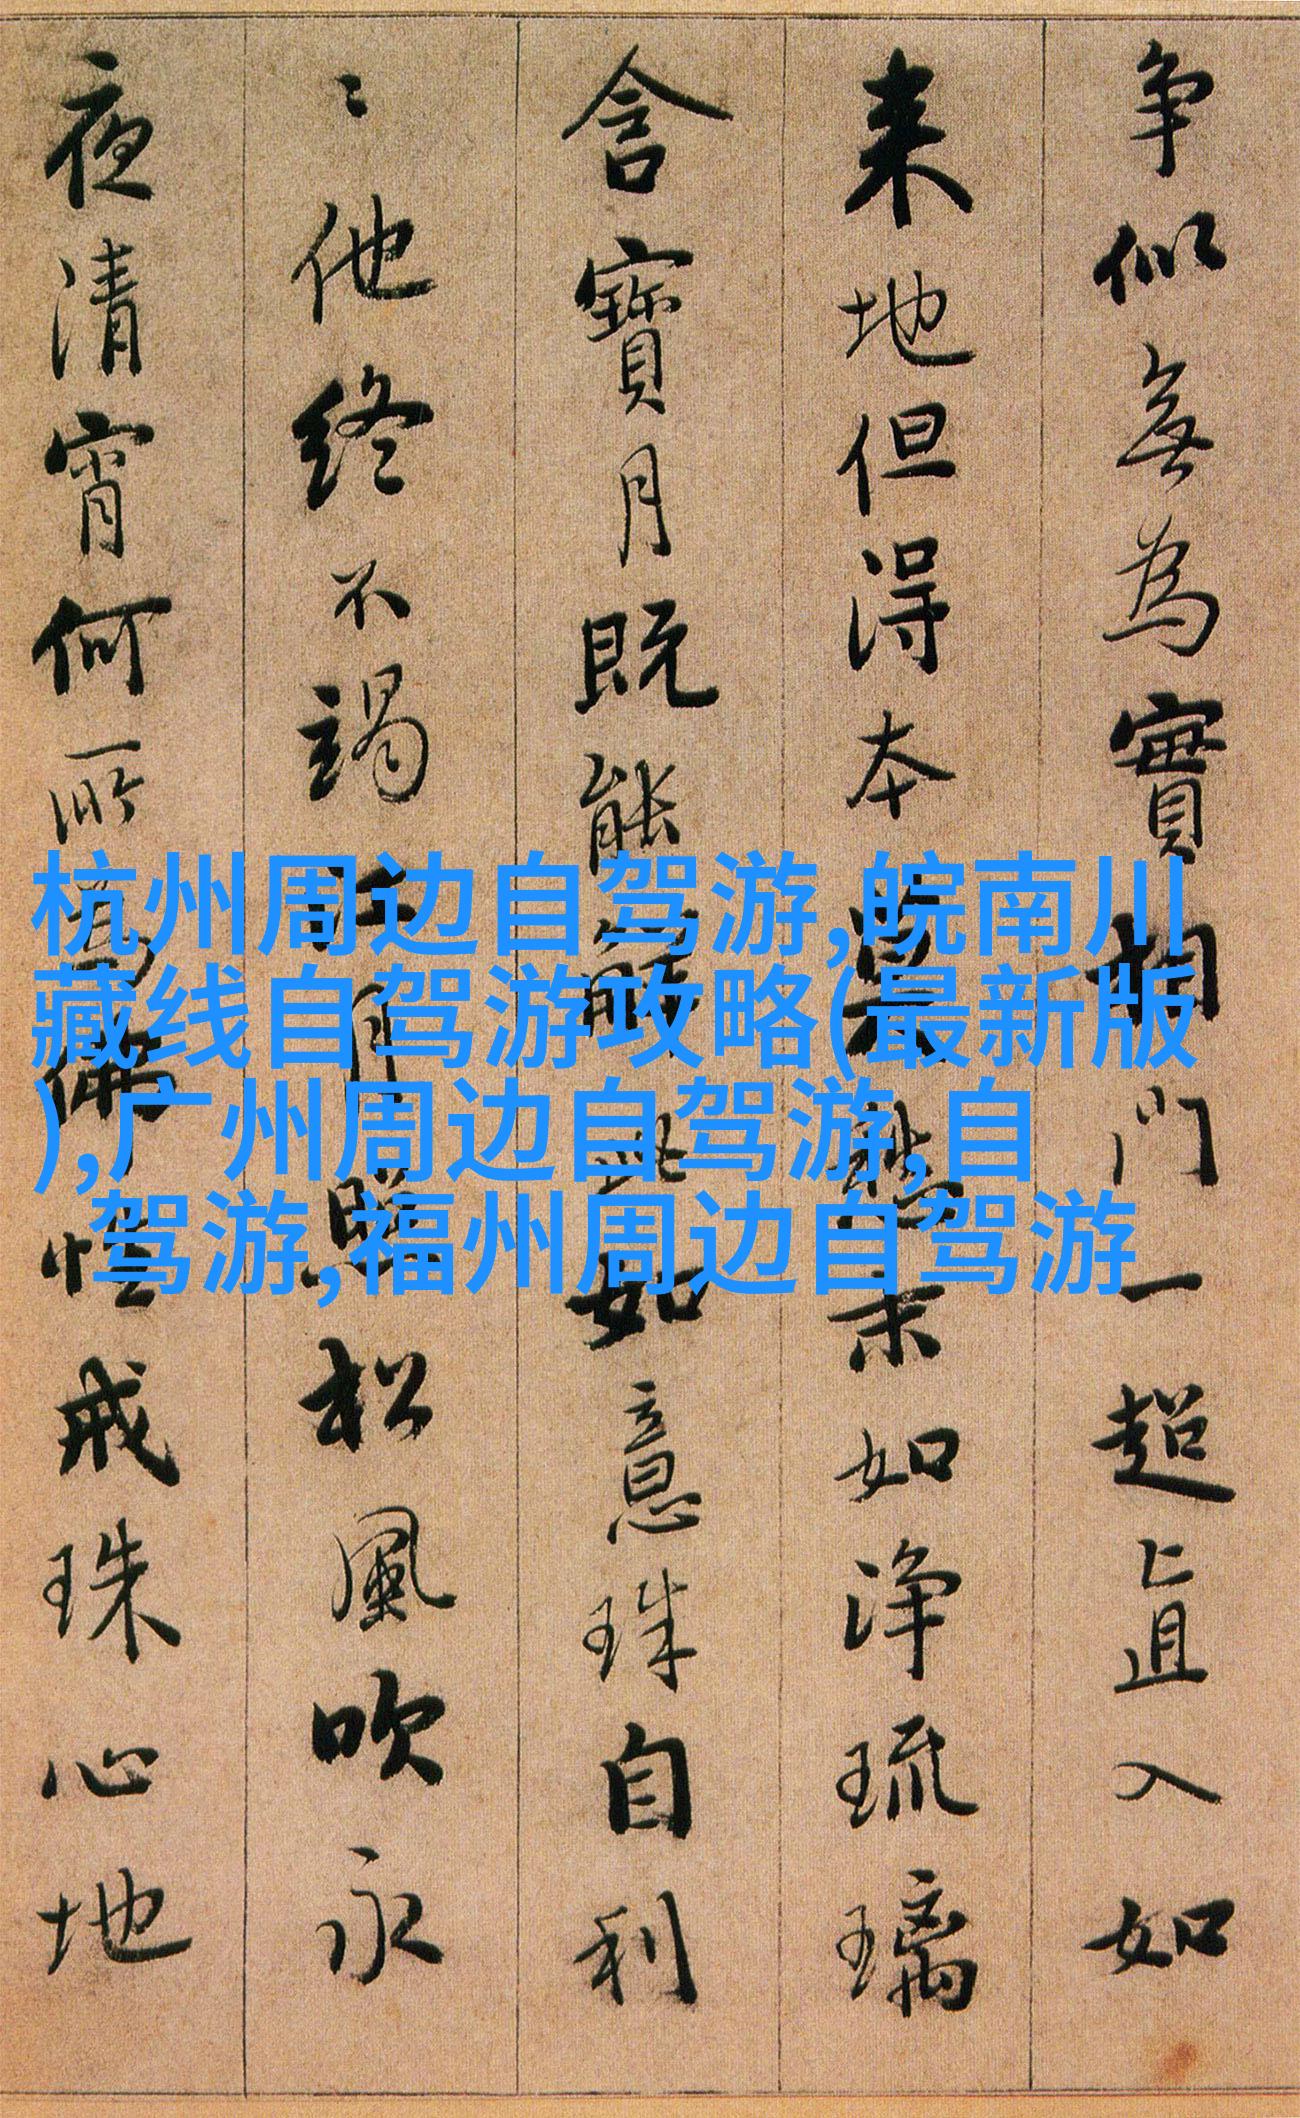 争似無為實相門一超直入如
来地但得本莫愁末如净琉璃
含寶月既能解此如意珠自利
〻他終不竭江月照松風吹永
夜清宵何所為佛性戒珠心地
杭州周边自驾游,皖南川
藏线自驾游攻略(最新版
),广州周边自驾游,自
驾游,福州周边自驾游